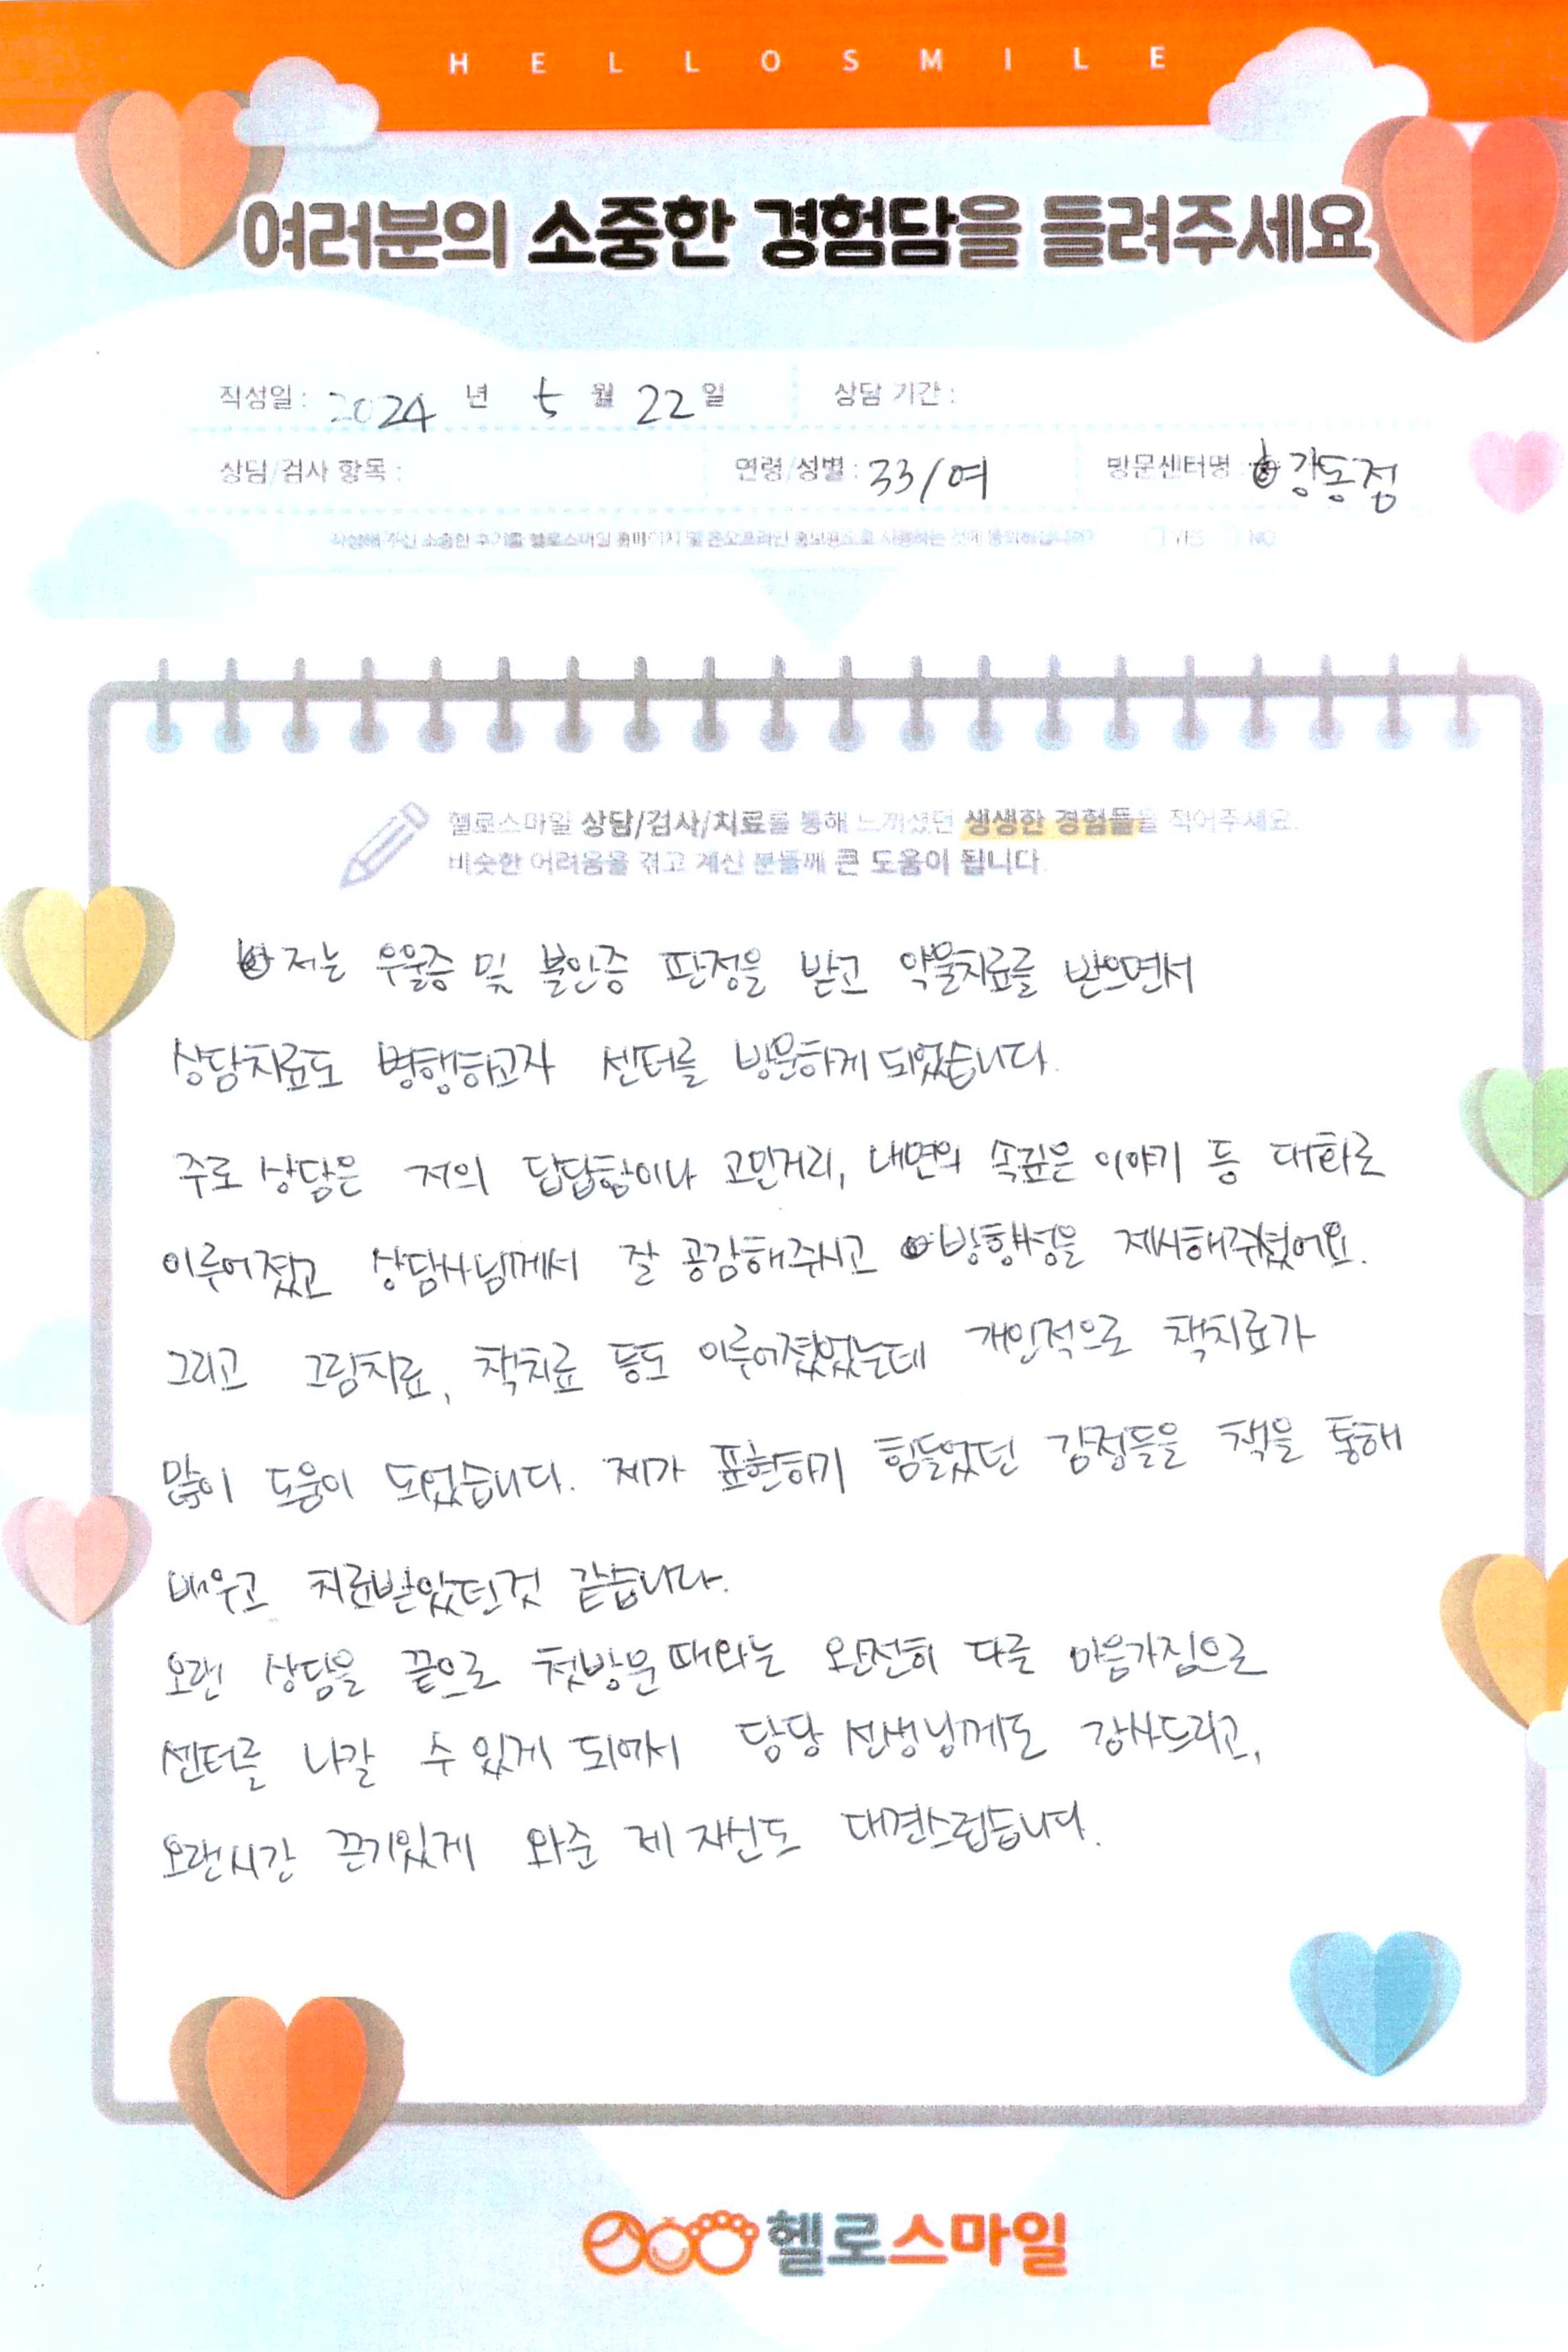 HELLOSMILE
여러분의 소중한 경험담을 들려주세요
작성일 : 2024 년 5 월 22 일 상담 기간 :
상담/검사 항목 : 연령/성별 : 33/여 방문센터명 : 강동점
작성해 주신 소중한 후기를 헬로스마일 홈페이지 및 온오프라인 홍보용으로 사용하는 것에 동의하십니까? YES NO
헬로스마일 상담/검사/치료를 통해 느끼셨던 생생한 경험들을 적어주세요.
비슷한 어려움을 겪고 계신 분들께 큰 도움이 됩니다.
저는 우울증 및 불안증 판정을 받고 약물치료를 받으면서
상담치료도 병행하고자 센터를 방문하게 되었습니다.
주로 상담은 저의 답답함이나 고민거리, 내면의 속깊은 이야기 등 대화로
이루어졌고 상담사님께서 잘 공감해주시고 방향성을 제시해주셨어요.
그리고 그림치료, 책치료 등도 이루어졌었는데 개인적으로 책치료가
많이 도움이 되었습니다. 제가 표현하기 힘들었던 감정들을 책을 통해
배우고 치료받았던것 같습니다.
오랜 상담을 끝으로 첫방문 때와는 완전히 다른 마음가짐으로
센터를 나갈 수 있게 되어서 담당 선생님께도 감사드리고,
오랜시간 끈기있게 와준 제 자신도 대견스럽습니다.
헬로스마일